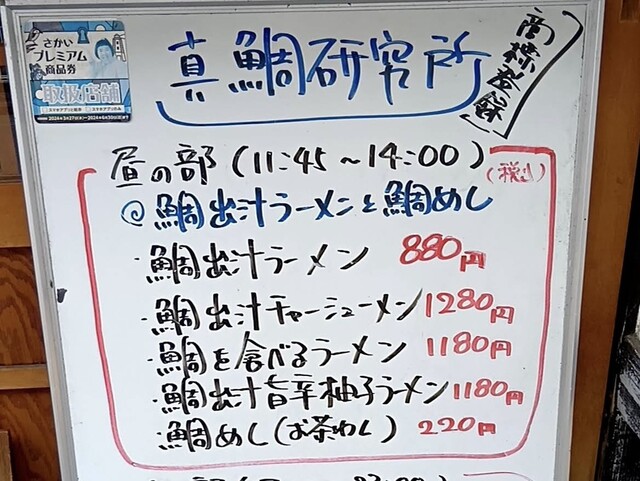 さかい
プレミアム
商品券
取扱店舗
真鯛研究所
商標登録
昼の部(11:45～14:00)
(税込)
◎鯛出汁ラーメンと鯛めし
・鯛出汁ラーメン 880円
・鯛出汁チャーシューメン 1280円
・鯛を食べるラーメン 1180円
・鯛出汁旨辛柚子ラーメン 1180円
・鯛めし(お茶わし) 220円